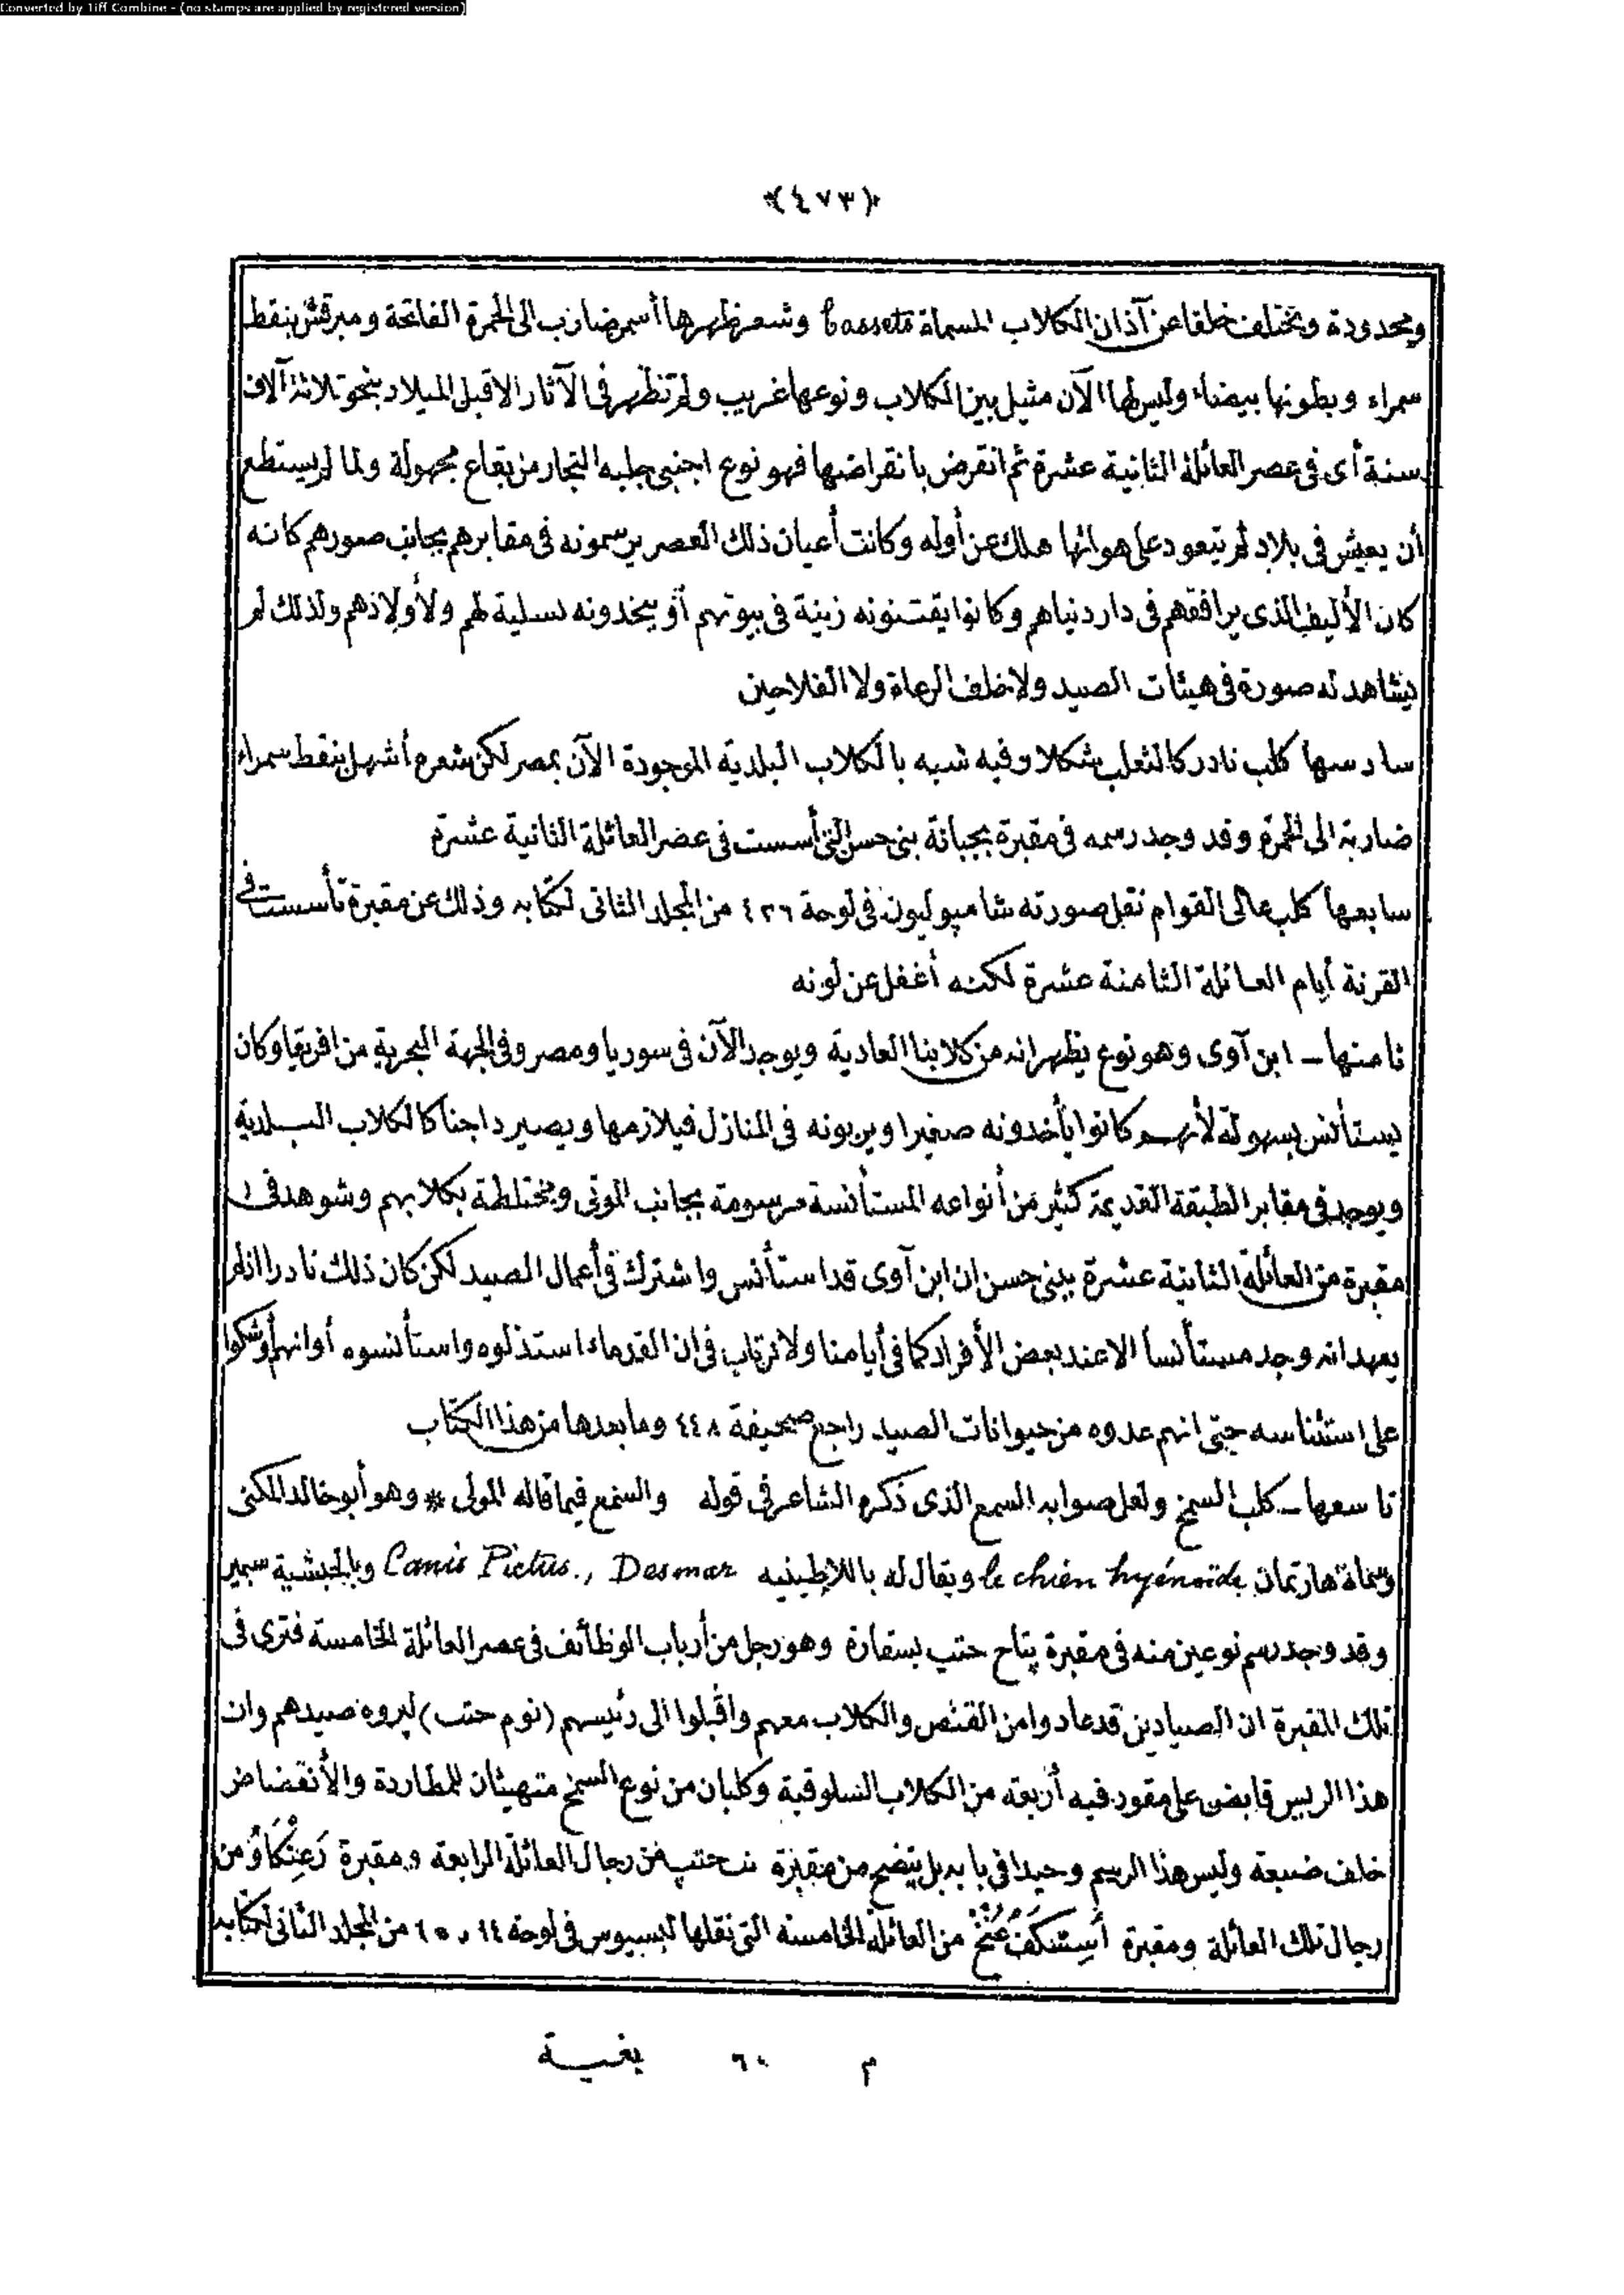 Converted by Tiff Combine - (no stamps are applied by registered version)
﴿٤٧٣﴾
ومحدودة وتختلف خلقا عن آذان الكلاب المسماة bassets وشعر ظهرها أسمر ضارب الى الحمرة الفاتحة ومبرقش بنقط
سمراء وبطونها بيضاء وليس لها الآن مثيل بين الكلاب ونوعها غريب ولم تظهر فى الآثار الا قبل الميلاد بنحو ثلاثة آلاف
سنة أى فى عصر العائلة الثانية عشرة ثم انقرض بانقراضها فهو نوع اجنبى جلبه التجار من بقاع مجهولة ولما لم يستطع
أن يعيش فى بلاد لم يتعود على هوائها هلك عن أوله وكانت أعيان ذلك العصر يرسمونه فى مقابرهم بجانب صورهم كانه
كان الأليف الذى يرافقهم فى دار دنياهم وكانوا يقتنونه زينة فى بيوتهم أو يتخذونه تسلية لهم ولأولادهم ولذلك لم
يشاهد له صورة فى هيئات الصيد ولا خلف الرعاة ولا الفلاحين
سادسها كلب نادر كالثعلب شكلا وفيه شبه بالكلاب البلدية الموجودة الآن بمصر لكن شعره أشهل بنقط سمراء
ضاربة الى الحمرة وقد وجد رسمه فى مقبرة بجبانة بنى حسن التى أسست فى عصر العائلة الثانية عشرة
سابعها كلب عالى القوام نقل صورته شامپوليون فى لوحة ٤٢٦ من المجلد الثانى لكتابه وذلك عن مقبرة تأسست فى
القرنة أيام العائلة الثامنة عشرة لكنه أغفل عن لونه
ثامنها ـ ابن آوى وهو نوع يظهر انه من كلابنا العادية ويوجد الآن فى سوريا ومصر وفى الجهة البحرية من افريقا وكان
يستأنس بسهولة لأنهم كانوا يأخذونه صغيرا ويربونه فى المنازل فيلازمها ويصير داجنا كالكلاب البلدية
ويوجد فى مقابر الطبقة القديمة كثير من أنواعه المستأنسة مرسومة بجانب الموتى ومختلطة بكلابهم وشوهد فى
مقبرة من العائلة الثانية عشرة ببنى حسن ان ابن آوى قد استأنس واشترك فى أعمال الصيد لكن كان ذلك نادرا اذ لم
يعهد انه وجد مستأنسا الا عند بعض الأفراد كما فى أيامنا ولا نرتاب فى ان القدماء استذلوه واستأنسوه أو انهم أوشكوا
على استئناسه حتى انهم عدوه من حيوانات الصيد راجع صحيفة ٤٤٨ وما بعدها من هذا الكتاب
تاسعها ـ كلب السمخ ولعل صوابه السمع الذى ذكره الشاعر فى قوله والسمع فيما قاله المولى * وهو أبو خالد المكنى
وسماه هارتمان le chien hyénoïde ويقال له باللاطينيه Canis Pictus., Desmar وبالحبشية سمير
وقد وجد رسم نوعين منه فى مقبرة پتاح حتب بسقارة وهو رجل من أرباب الوظائف فى عصر العائلة الخامسة فترى فى
تلك المقبرة ان الصيادين قد عادوا من القنص والكلاب معهم وأقبلوا الى رئيسهم (نوم حتب) ليروه صيدهم وان
هذا الريس قابض على مقود فيه أربعة من الكلاب السلوقية وكلبان من نوع السمخ متهيئان للمطاردة والأنقضاض
خلف ضبعة وليس هذا الرسم وحيدا فى بابه بل يتضح من مقبرة حتب من رجال العائلة الرابعة ومقبرة ومن
رجال تلك العائلة ومقبرة من العائلة الخامسة التى نقلها ليسيوس فى لوحة ١٤ و ١٥ من المجلد الثانى لكتابه
م ٦٠ بغيــة